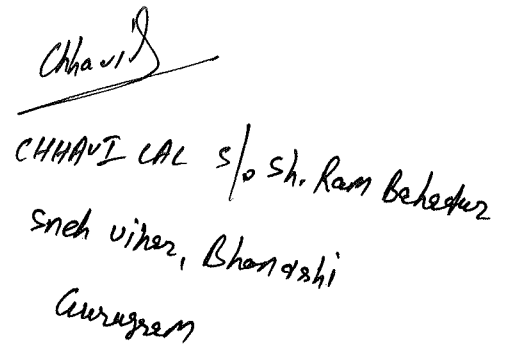 Chhavi
CHHAVI LAL S/o Sh. Ram Bahadur
Sneh vihar, Bhondshi
Gurugram